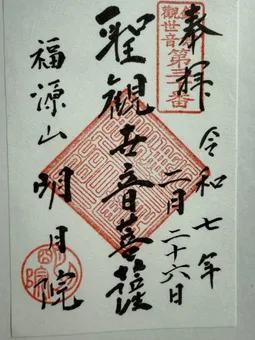 奉拝
觀世音
第三番
令和七年
二月二十六日
聖観世音菩薩
福源山
明月院